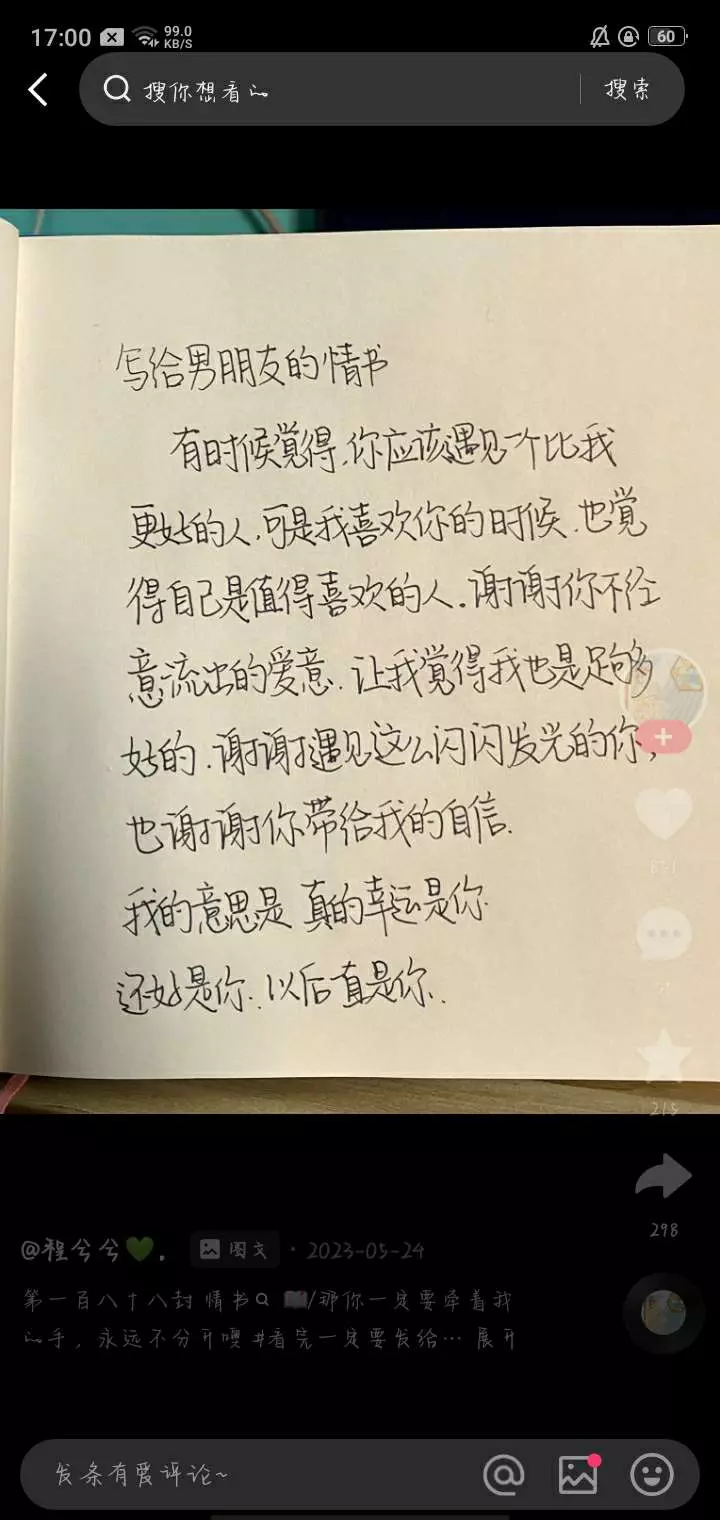 17:00 99.0 KB/S 60
搜你想看的 搜索
写给男朋友的情书
有时候觉得.你应该遇见一个比我
更好的人.可是我喜欢你的时候.也觉
得自己是值得喜欢的人.谢谢你不经
意流出的爱意.让我觉得我也是足够
好的.谢谢遇见这么闪闪发光的你,
也谢谢你带给我的自信.
我的意思是 真的幸运是你
还好是你.以后直是你.
215
298
@程兮兮💚. 图文 · 2023-05-24
第一百八十八封情书 /那你一定要牵着我
的手，永远不分开噢 #看完一定要发给… 展开
发条有爱评论~